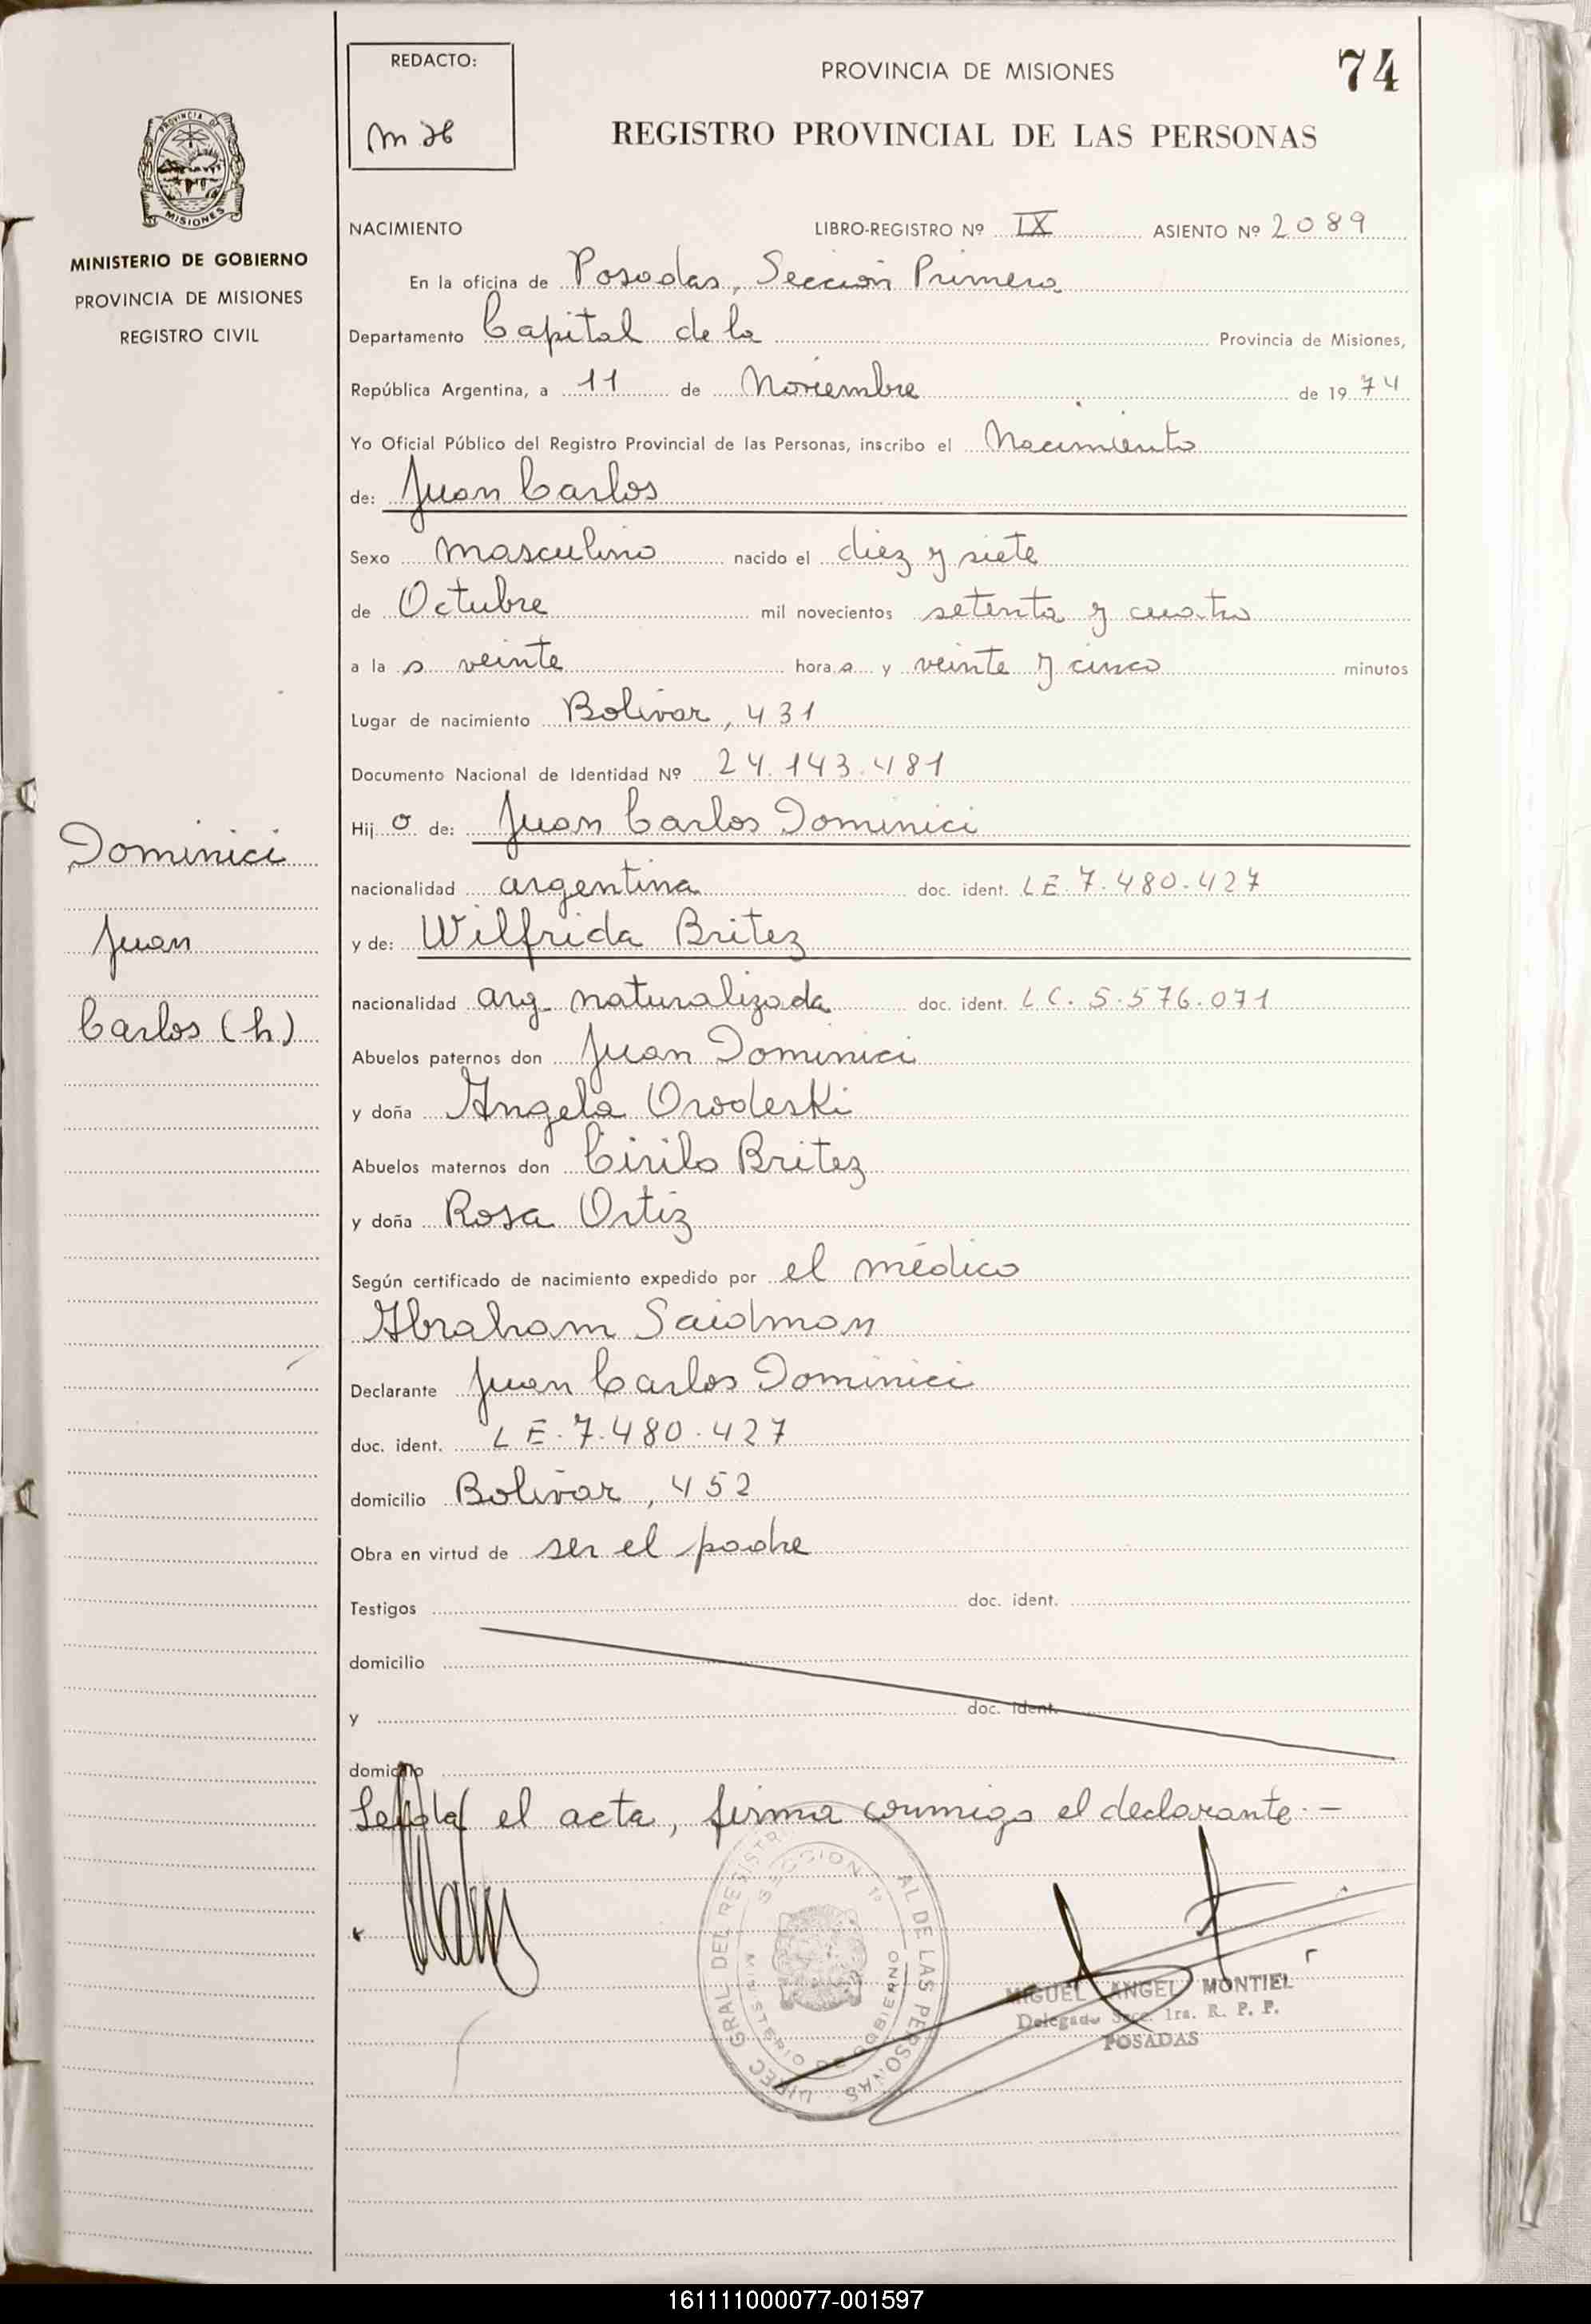 74
REDACTO:
PROVINCIA DE MISIONES
REGISTRO PROVINCIAL DE LAS PERSONAS
PROVINCIA DE
MISIONES
MINISTERIO DE GOBIERNO
PROVINCIA DE MISIONES
REGISTRO CIVIL
NACIMIENTO LIBRO-REGISTRO Nº IX ASIENTO Nº 2089
En la oficina de Posadas, Sección Primera
Departamento Capital de la Provincia de Misiones,
República Argentina, a 11 de Noviembre de 1974
Yo Oficial Público del Registro Provincial de las Personas, inscribo el Nacimiento
de: Juan Carlos
Sexo masculino nacido el diez y siete
de Octubre mil novecientos setenta y cuatro
a la s veinte hora s y veinte y cinco minutos
Lugar de nacimiento Bolivar, 431
Documento Nacional de Identidad Nº 24.143.481
Hij o de: Juan Carlos Dominici
nacionalidad argentina doc. ident. LE.7.480.427
y de: Wilfrida Britez
nacionalidad arg. naturalizada doc. ident. LC.5.576.071
Abuelos paternos don Juan Dominici
y doña Angela Orodeski
Abuelos maternos don Cirilo Britez
y doña Rosa Ortiz
Según certificado de nacimiento expedido por el médico
Abraham Saidman
Declarante Juan Carlos Dominici
doc. ident. LE.7.480.427
domicilio Bolivar, 452
Obra en virtud de ser el padre
Testigos doc. ident.
domicilio
y doc. ident.
domicilio
Leída el acta, firma conmigo el declarante.-
Dominici
Juan
Carlos (h)
DIREC GRAL DEL REGISTR AL DE LAS PERSONAS
SECCION 1º
MINISTERIO DE GOBIERNO
MIGUEL ANGEL MONTIEL
Delegado Secc. 1ra. R. P. P.
POSADAS
161111000077-001597